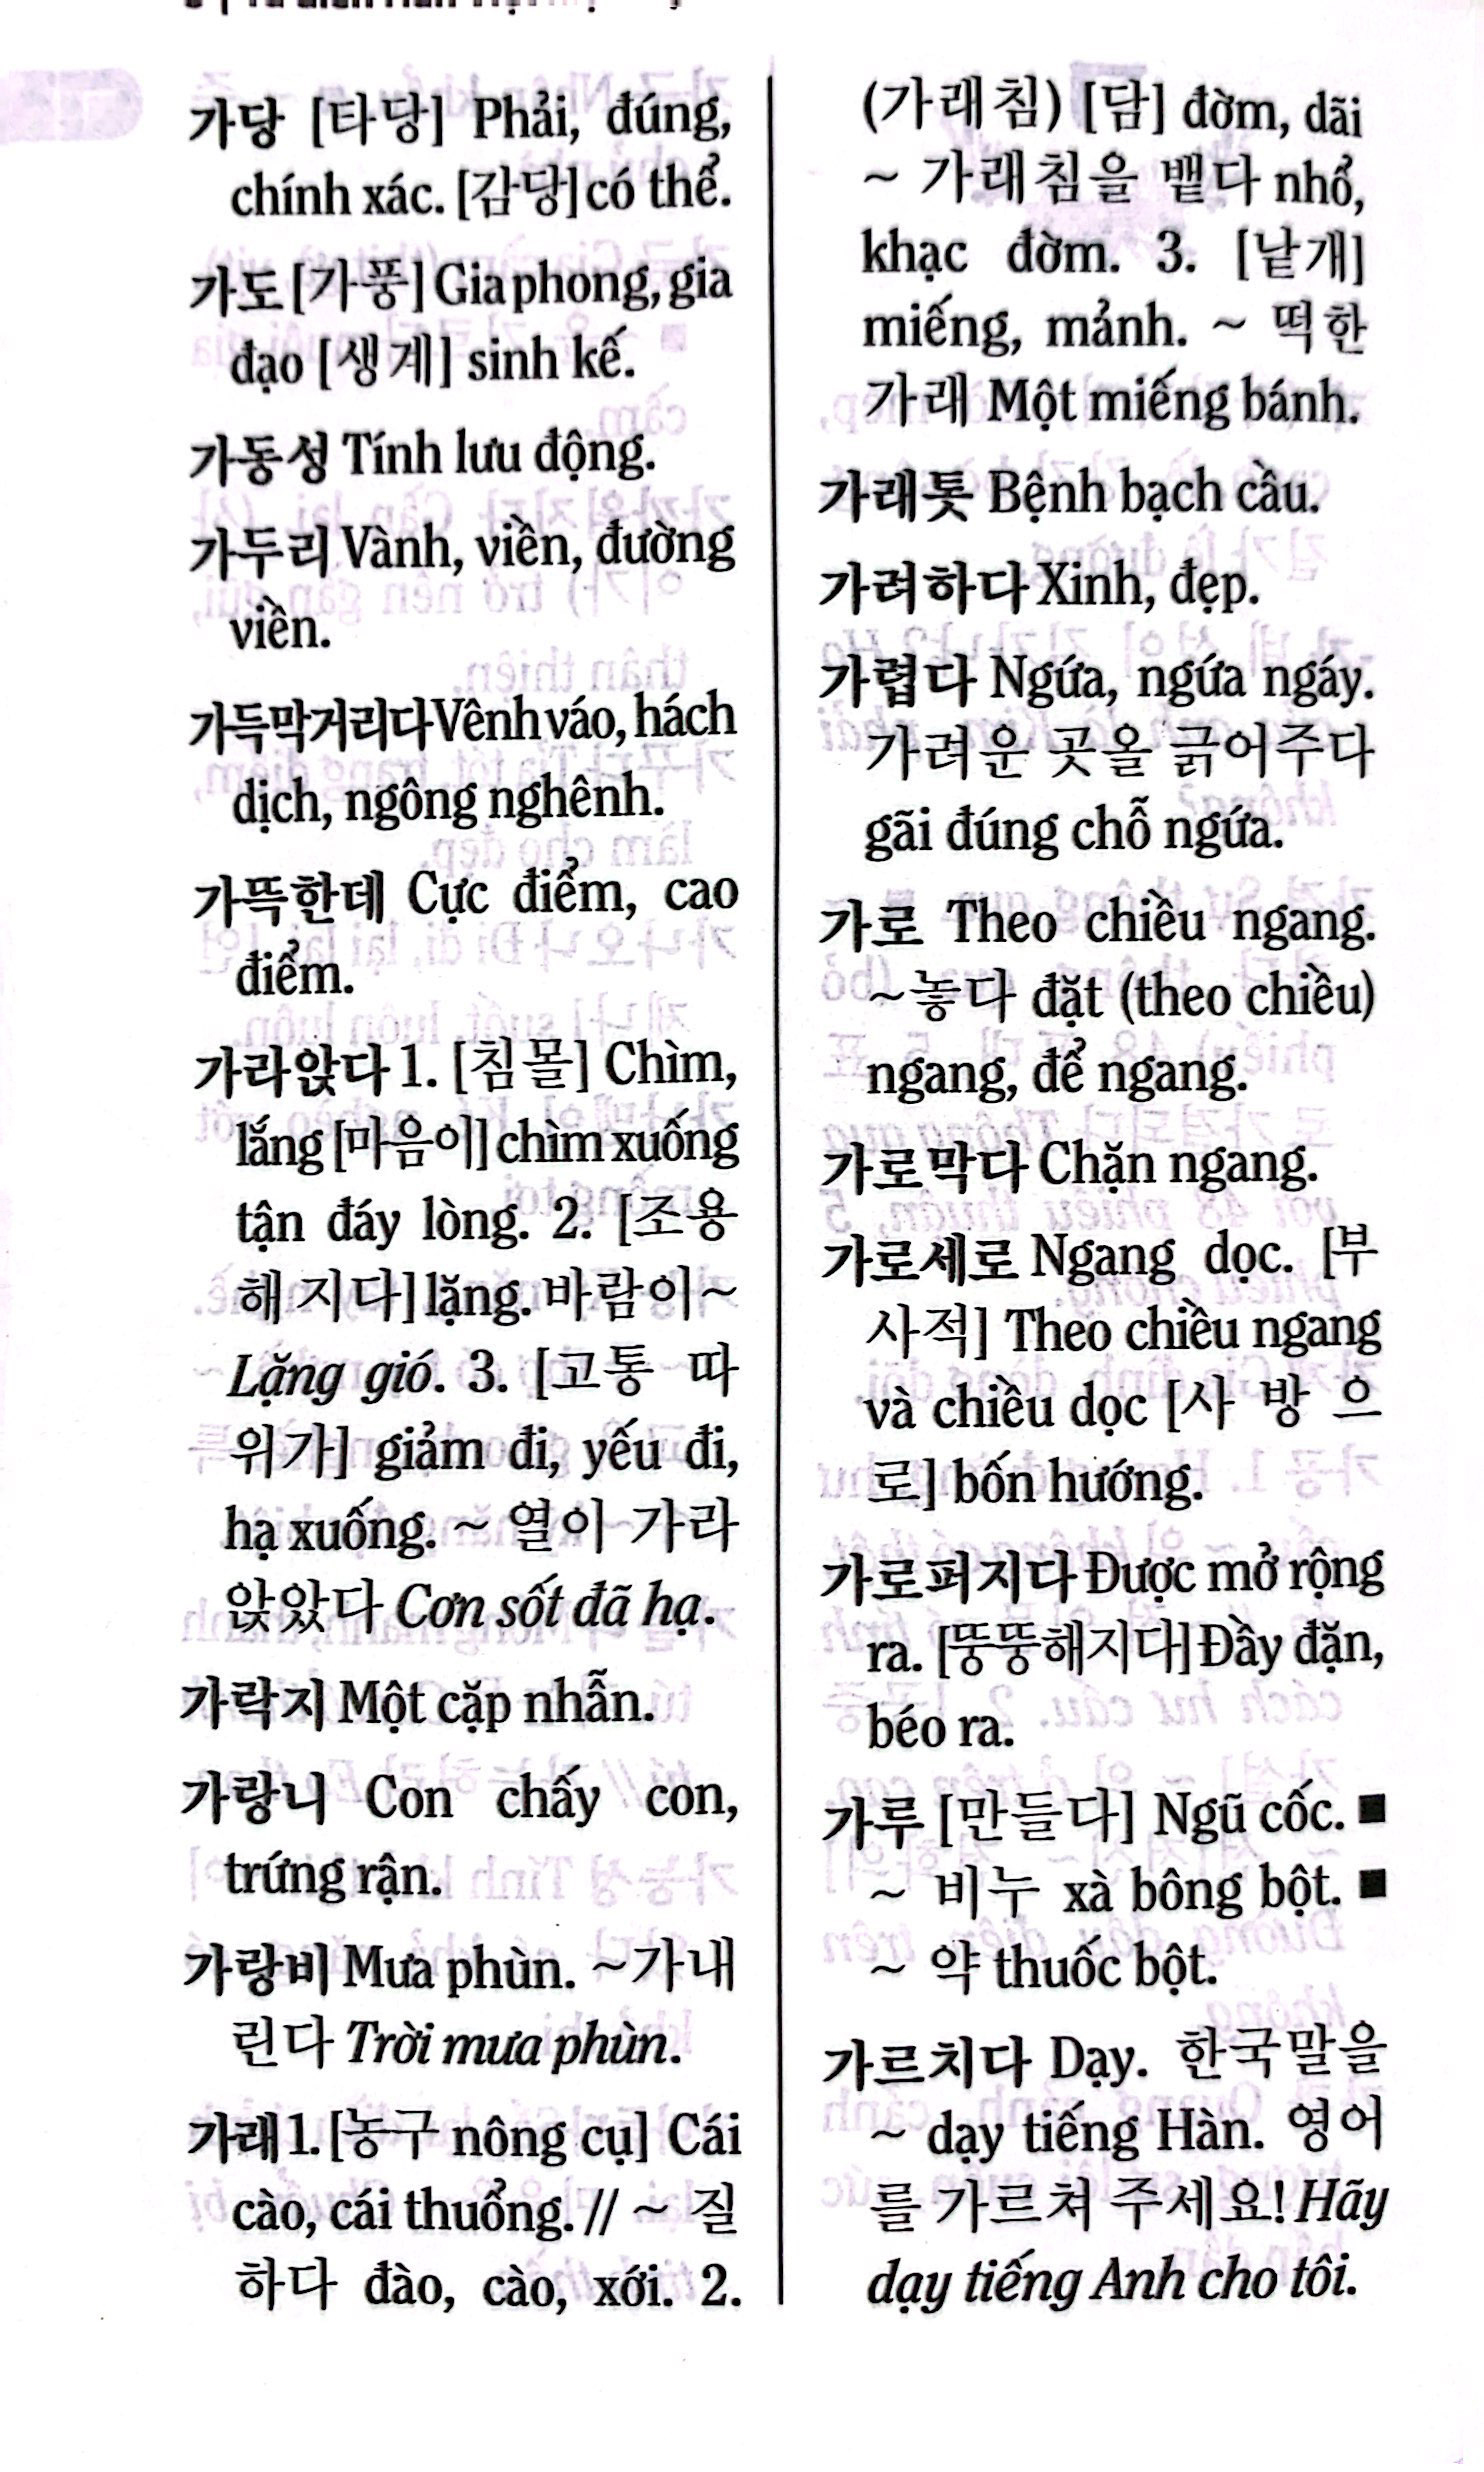 가당 [타당] Phải, đúng,
chính xác. [감당] có thể.
가도 [가풍] Gia phong, gia
đạo [생계] sinh kế.
가동성 Tính lưu động.
가두리 Vành, viền, đường
viền.
가득막거리다 Vênh váo, hách
dịch, ngông nghênh.
가뜩한데 Cực điểm, cao
điểm.
가라앉다 1. [침몰] Chìm,
lắng [마음이] chìm xuống
tận đáy lòng. 2. [조용
해 지다] lặng. 바람이 ~
Lặng gió. 3. [고통 따
위가] giảm đi, yếu đi,
hạ xuống. ~ 열이 가라
앉았다 Cơn sốt đã hạ.
가락지 Một cặp nhẫn.
가랑니 Con chấy con,
trứng rận.
가랑비 Mưa phùn. ~가 내
린다 Trời mưa phùn.
가래 1. [농구 nông cụ] Cái
cào, cái thuổng. // ~ 질
하다 đào, cào, xới. 2.
(가래침) [담] đờm, dãi
~ 가래침을 뱉다 nhổ,
khạc đờm. 3. [낱개]
miếng, mảnh. ~ 떡 한
가래 Một miếng bánh.
가래톳 Bệnh bạch cầu.
가려하다 Xinh, đẹp.
가렵다 Ngứa, ngứa ngáy.
가려운 곳올 긁어주다
gãi đúng chỗ ngứa.
가로 Theo chiều ngang.
~놓다 đặt (theo chiều)
ngang, để ngang.
가로막다 Chặn ngang.
가로세로 Ngang dọc. [부
사적] Theo chiều ngang
và chiều dọc [사 방 으
로] bốn hướng.
가로퍼지다 Được mở rộng
ra. [뚱뚱해지다] Đầy đặn,
béo ra.
가루 [만들다] Ngũ cốc. ■
~ 비누 xà bông bột. ■
~ 약 thuốc bột.
가르치다 Dạy. 한국말을
~ dạy tiếng Hàn. 영어
를 가르쳐 주세요! Hãy
dạy tiếng Anh cho tôi.